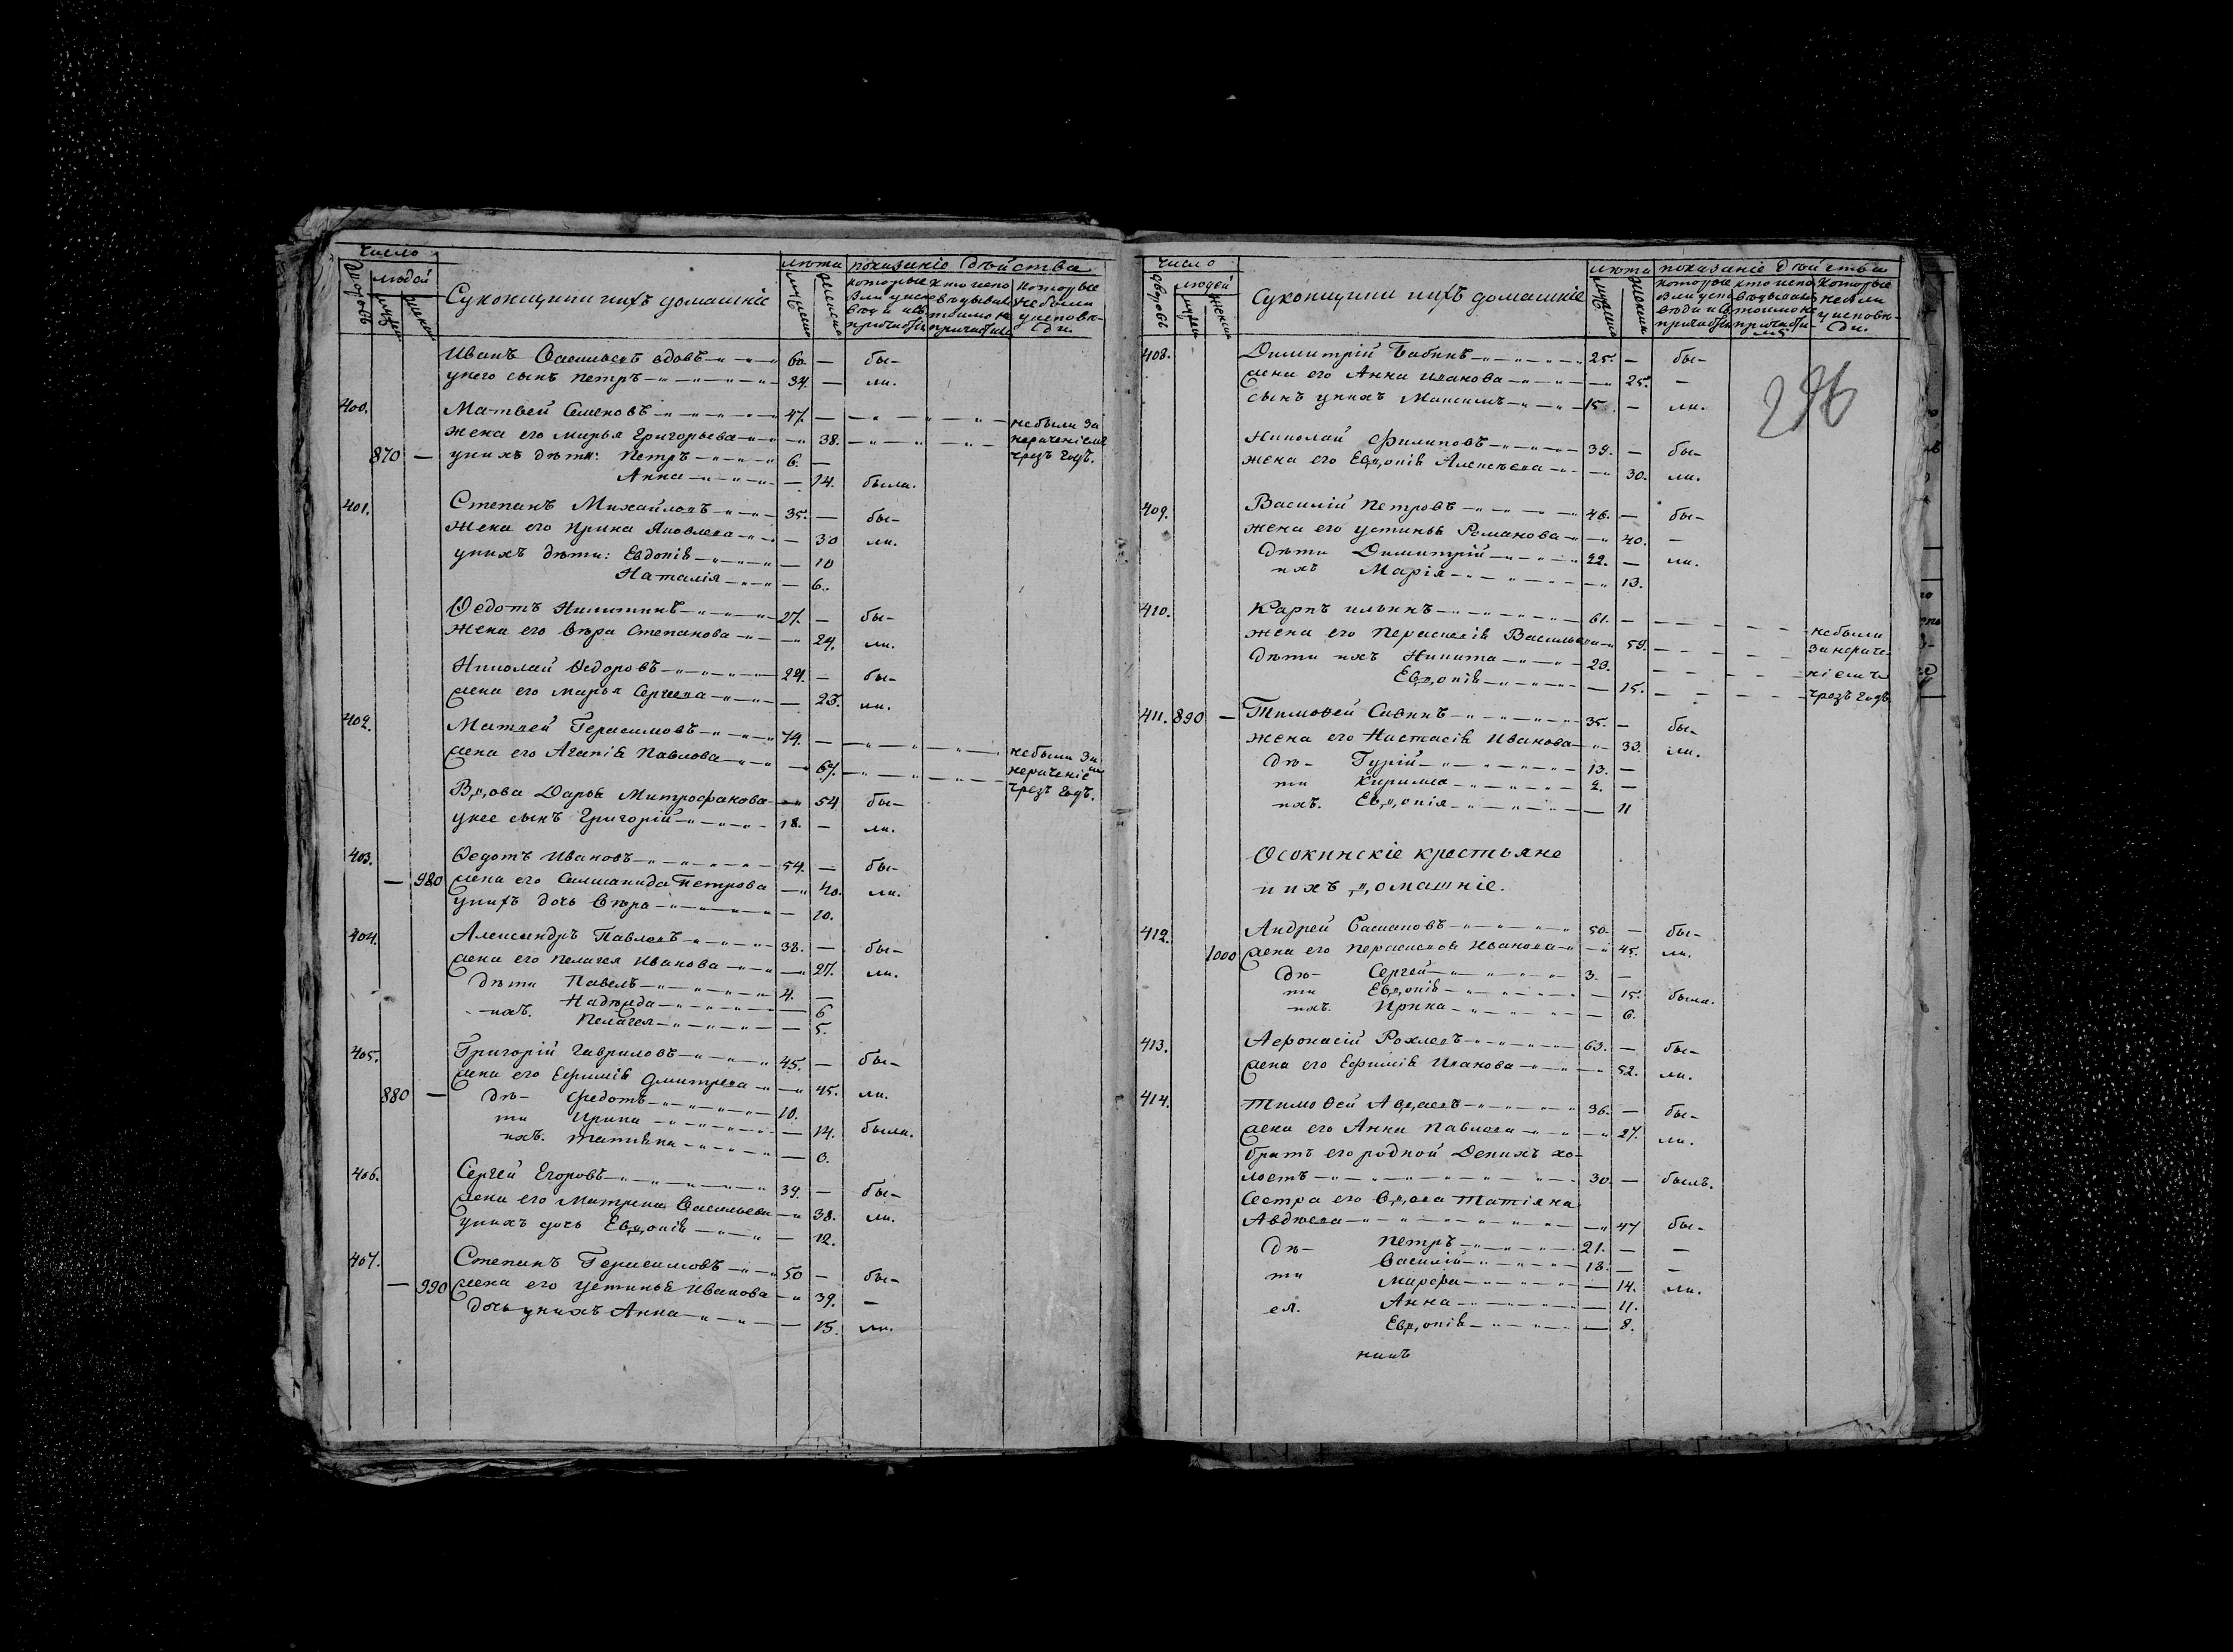 число
дворовъ
людей
мужеска
женска
Суконщики и ихъ домашніе
лѣта
мужеска
женска
показаніе дѣйства
которые были у исповѣди и св. причастія
кто исповѣдывались токмо не причастились
которые не были у исповѣди.
Иванъ Васильевъ вдовъ 60. — бы-
у него сынъ Петръ 34. — ли.
400. Матвей Семеновъ 47. — не были за
жена его Марья Григорьева — 38. нераченіемъ
870 — у нихъ дѣти: Петръ 6. — чрезъ годъ.
Анна — 14. была.
401. Степанъ Михайловъ 35. — бы-
жена его Ирина Яковлева — 30 ли.
у нихъ дѣти: Евдокія — 10
Наталія — 6.
Ѳедотъ Никитинъ 27. — бы-
жена его Вѣра Степанова — 24. ли.
Николай Ѳедоровъ 24. — бы-
жена его Марья Сергеева — 23. ли.
402. Матвей Герасимовъ 74. — не были за
жена его Агапія Павлова — 67. нераченіемъ
чрезъ годъ.
Вдова Дарья Митрофанова — 54 бы-
у нее сынъ Григорій 18. — ли.
403. Ѳедотъ Ивановъ 54. — бы-
— 980 жена его Соломанида Петрова — 40. ли.
у нихъ дочь Вѣра — 10.
404. Александръ Павловъ 38. — бы-
жена его Пелагея Иванова — 27. ли.
дѣти Павелъ 4. —
ихъ. Надежда — 6
Пелагея — 5.
405. Григорій Гавриловъ 45. — бы-
жена его Ефимія Дмитрева — 45. ли.
880 — дѣ- Федотъ 10.
ти Ирина — 14. была.
ихъ. Татіяна — 0.
406. Сергей Егоровъ 39. — бы-
жена его Матрена Васильева — 38. ли.
у нихъ дочь Евдокія — 12.
407. Степанъ Герасимовъ 50 — бы-
— 990 жена его Устинья Иванова — 39. —
дочь у нихъ Анна — 15. ли.
число
дворовъ
людей
мужеска
женска
Суконщики и ихъ домашніе
лѣта
мужеска
женска
показаніе дѣйства
которые были у исповѣди и св. причастія
кто исповѣдывались токмо не причастились
которые не были у исповѣди.
296
408. Димитрій Бабинъ 25. — бы-
жена его Анна Иванова — 25. —
сынъ у нихъ Максимъ 15. — ли.
Николай Филиповъ 39. — бы-
жена его Евдокія Алексѣева — 30. ли.
409. Василій Петровъ 46. — бы-
жена его Устинья Романова — 40. —
Дѣти Димитрій 22. — ли.
ихъ Марія — 13.
410. Карпъ Ильинъ 61. — не были
жена его Пераскевія Васильева — 59. за нераче-
дѣти ихъ Никита 23. ніемъ
Евдокія — 15. чрезъ годъ
411. 890 — Тимоѳей Савинъ 35. — бы-
жена его Настасія Иванова — 33. ли.
дѣ- Гурій 13. —
ти Кирилла 2. —
ихъ. Евдокія — 11
Осокинскіе крестьяне
и ихъ домашніе.
412. Андрей 50. — бы-
1000 жена его Пераскевія Иванова — 45. ли.
дѣ- Сергей 3. —
ти Евдокія — 15. была.
ихъ. Ирина — 6.
413. Афонасій 63. — бы-
жена его Ефимія Иванова — 52. ли.
414. Тимоѳей Авдеевъ 36. — бы-
жена его Анна Павлова — 27. ли.
братъ его родной Денисъ хо-
лостъ 30. — былъ.
Сестра его вдова Татіяна
Авдѣева — 47 бы-
дѣ- Петръ 21. — —
Василій 18. — —
ти Марфа — 14. ли.
ея. Анна — 11.
Евдокія — 8.